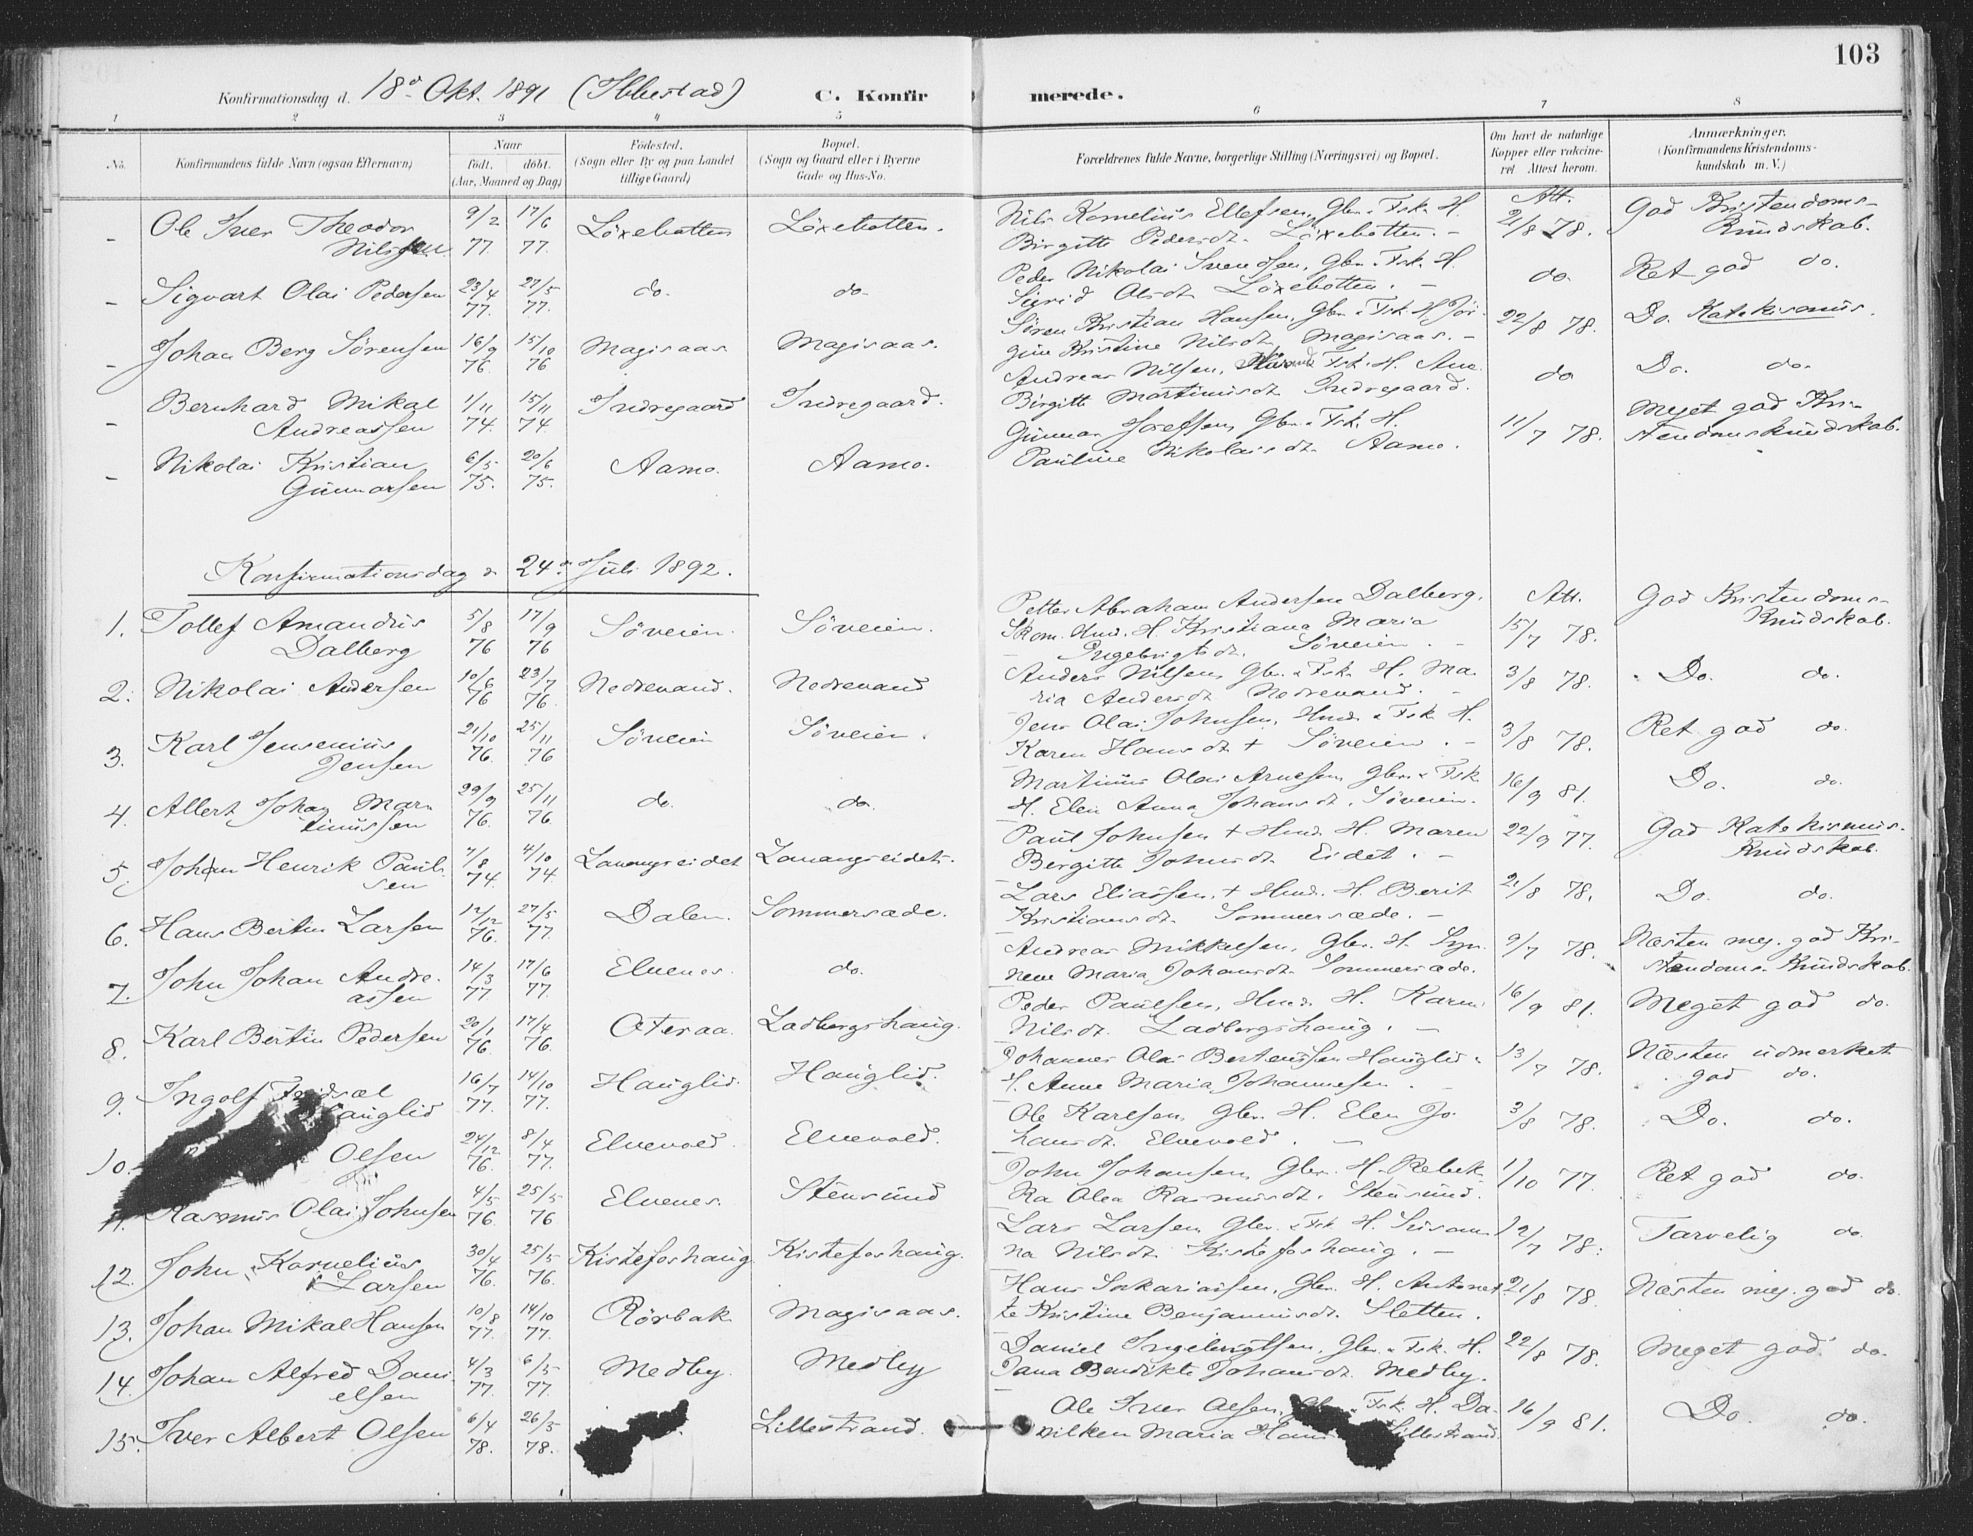 103
Konfirmationsdag d. 18de Okt. 1891 (Ibbestad) C. Konfirmerede.
1 2 3 4 5 6 7 8
No. Konfirmandens fulde Navn (ogsaa Efternavn) Naar født. døbt. (Aar, Maaned og Dag) Fødested. (Sogn eller By og paa Landet tillige Gaard) Bopæl. (Sogn og Gaard eller i Byerne Gade og Hus-No. Forældrenes fulde Navne, borgerlige Stilling (Næringsvei) og Bopæl. Om havt de naturlige Kopper eller vakcineret Attest herom. Anmærkninger. (Konfirmandens Kristendomskundskab m. V.)
- Ole Iver Theodor Nilssen 9/2 77. 17/6 77. Löxebotten Löxebotten. Nils Kornelius Ellefsen, Gbr. & Fsk. H. Birgitte Pedersdt. Löxebotten. - Att. 21/8 78. God Kristendoms-Kundskab.
- Sigvart Olai Pedersen 23/4 77. 27/5 77. do. do. Peder Nikolai Svendsen, Gbr. & Fsk. H. Sigrid Olsdt. Löxebotten. - do Ret god do.
- Johan Berg Sörensen 16/9 76. 15/10 76 Magisaas Magisaas. Sören Kristian Hansen, Gbr. & Fsk. H. Jörgine Kristine Nilsdt. Magisaas. - 22/8 78. Do. Katekismus.
- Bernhard Mikal Andreassen 1/11 74. 15/11 74. Indregaard Indregaard. Andreas Nilsen, Fsk. H. Ane Birgitte Martinusdt. Indregaard. do Do. do.
- Nikolai Kristian Gunnarsen 6/5 75. 20/6 75. Aamo. Aamo. Gunnar Josefsen, Gbr. & Fsk. H. Pauline Nikolaisdt. Aamo. 11/7 78. Meget god Kristendomskundskab.
Konfirmationsdag d. 24de Juli 1892.
1. Tollef Amandus Dalberg 5/8 76 17/9 76 Söveien. Söveien. Petter Abraham Andersen Dalberg, Skom. Hmd. H. Kristiana Maria Ingebrigtsdt. Söveien. - Att. 15/7 78. God Kristendoms-Kundskab.
2. Nikolai Andersen 10/6 76 23/7 76. Nedrevand. Nedrevand Anders Nilsen, Gbr. & Fsk. H. Maria Andersdt. Nedrevand. - 3/8 78. Do. do.
3. Karl Jensenius Jensen 21/10 76. 25/11 76 Söveien Söveien. Jens Olai Johnsen, Hmd. & Fsk. H. Karen Hansdt. + Söveien. - 3/8 78. Ret god do.
4. Albert Johan Martinussen 29/9 76. 25/11 76. do. do. Martinus Olai Arnesen, Gbr. & Fsk. H. Elen Anna Johansdt. Söveien. 16/9 81. Do. do.
5. Johan Henrik Paulsen 7/8 74. 4/10 74. Lavangseidet Lavangseidet. Paul Johnsen + Hmd. H. Maren Bergitte Johnsdt. Eidet. - 22/9 77. God Katekismus-Kundskab.
6. Hans Bertin Larsen 12/12 76. 27/5 77. Dalen. Sommersæde. Lars Eliassen, + Hmd. H. Berit Kristiansdt. Sommersæde. - 21/8 78. Do. do.
7. John Johan Andreassen 14/3 77 17/6 77. Elvenes. do. Andreas Mikkelsen, Gbr. H. Synneve Maria Johansdt. Sommersæde. 9/7 78. Næsten meg. god Kristendoms-Kundskab.
8. Karl Bertin Pedersen 20/1 76. 17/4 76. Oteraa. Ladbergshaug. Peder Paulsen, Hmd. H. Karen Nilsdt. Ladbergshaug. - 16/9 81. Meget god do.
9. Ingolf Hauglid 16/7 77. 14/10 77. Hauglid. Hauglid. Johannes Olai Berteussen Hauglid & H. Anne Maria Johannesen. - 13/7 78. Næsten udmerket god do.
10. Olsen 24/12 76. 8/4 77. Elvevold. Elvevold. Ole Karlsen, Gbr. H. Elen Johansdt. Elvevold. - 3/8 78. Do. do.
11. Rasmus Olai Johnsen 4/5 76. 25/5 76 Elvenes. Stensund John Johansen, Gbr. H. Rebekka Olea Rasmusdt. Stensund. 1/10 77. Ret god do.
12. John Kornelius Larsen 30/4 76. 25/5 76. Kistefoshaug Kistefoshaug. Lars Larsen, Gbr. & Fsk. H. Nilsdt. Kistefoshaug. - 12/7 78. Tarvelig do.
13. Johan Mikal Hansen 10/8 77. 14/10 77. Rörbak Magisaas. Hans Sakariassen, Gbr. H. Antonette Kristine Benjaminsdt. Sletten. 21/8 78. Næsten meg. god do.
14. Johan Alfred Danielsen 4/3 77. 6/5 77. Medby. Medby Daniel Ingebrigtsen, Gbr. & Fsk. H. Jana Bendikte Johansdt. Medby. 22/8 78. Meget god do.
15. Iver Albert Olsen 6/4 78. 26/5 78. Lillestrand. Ole Iver Olsen, Fsk. H. Davilken Maria Lillestrand. 16/9 81. Do. do.